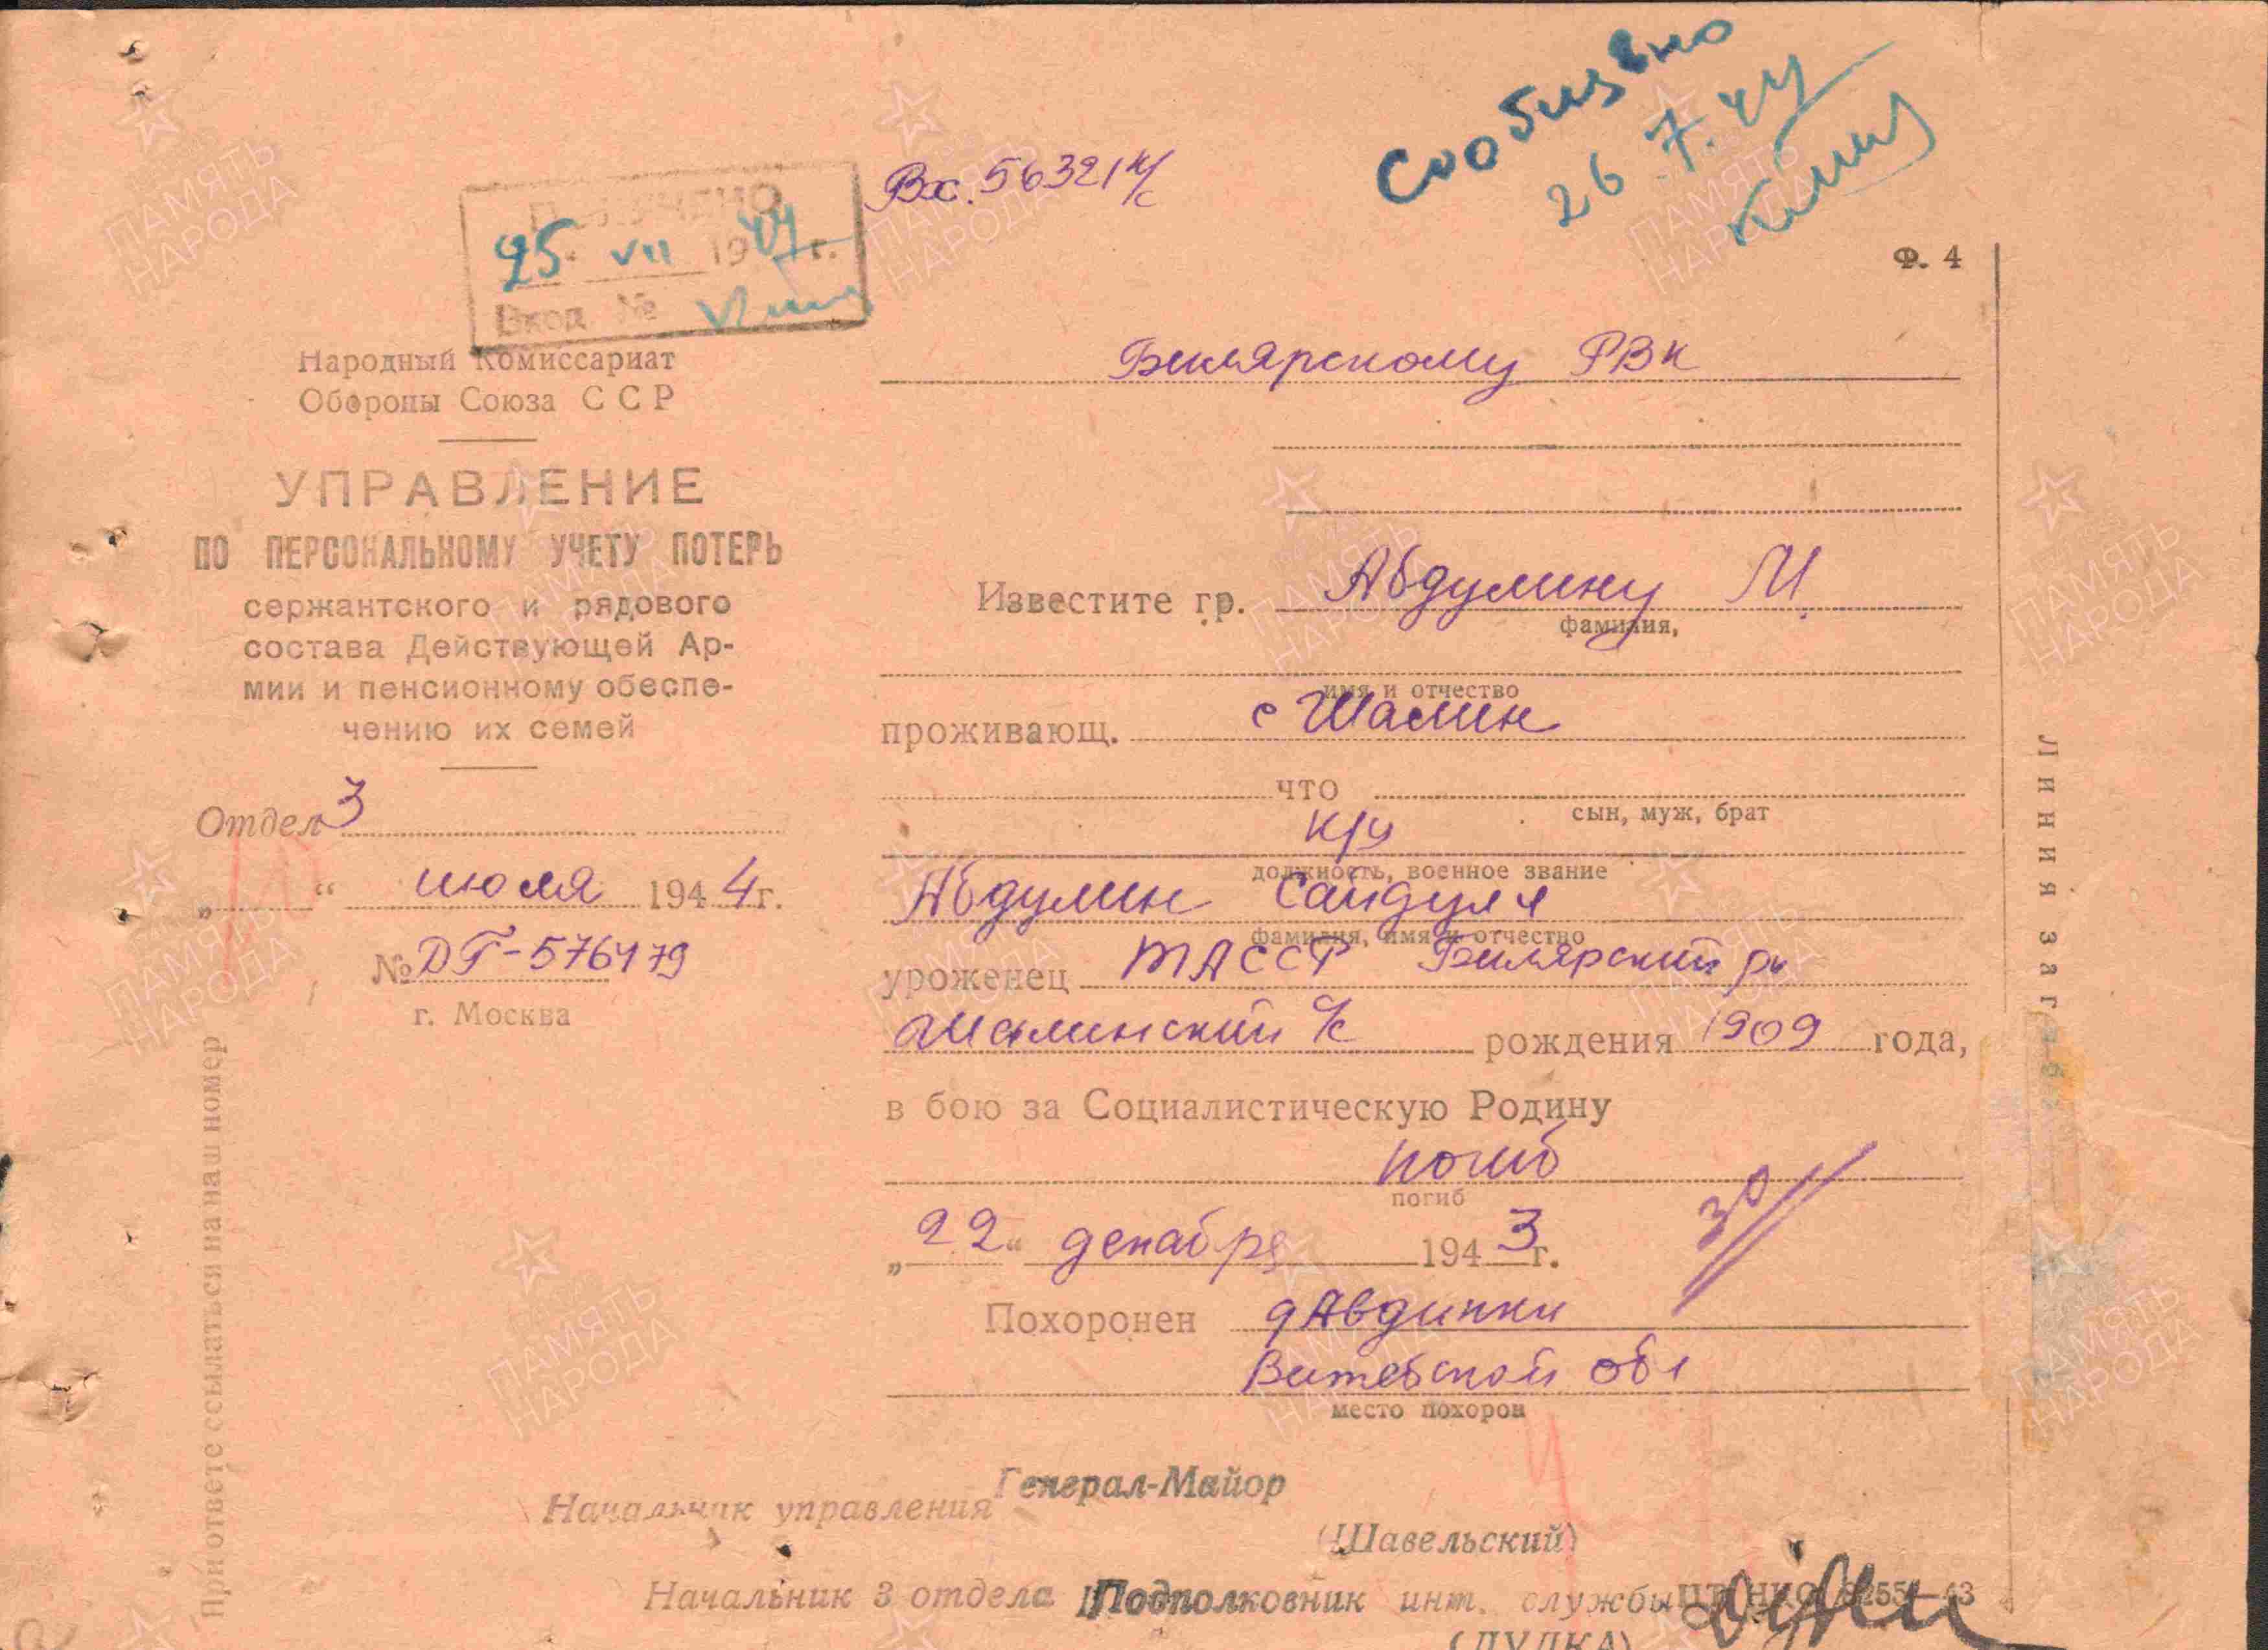 Сообщено
26.7.44
Вх. 56321 н/с
ПОЛУЧЕНО
25. VII 1944 г.
Вход. №
Ф. 4
Народный Комиссариат
Обороны Союза ССР
УПРАВЛЕНИЕ
ПО ПЕРСОНАЛЬНОМУ УЧЕТУ ПОТЕРЬ
сержантского и рядового
состава Действующей Ар-
мии и пенсионному обеспе-
чению их семей
Отдел 3
„ “ июля 1944 г.
№ ДГ-576479
г. Москва
При ответе ссылаться на наш номер
Билярскому РВК
Известите гр. Абдулину М.
фамилия,
имя и отчество
проживающ. с Шамин
что
сын, муж, брат
к/у
должность, военное звание
Абдулин Сайдуля
фамилия, имя и отчество
уроженец ТАССР Билярский рн
Шаминский с/с рождения 1909 года,
в бою за Социалистическую Родину
погиб
погиб
„22“ декабря 1943 г.
30
Похоронен д Авдинки
Витебской обл
место похорон
Начальник управления Генерал-Майор
(Шавельский)
Начальник 3 отдела Подполковник инт. службы
(ДУДКА)
Линия заг
ПАМЯТЬ
НАРОДА